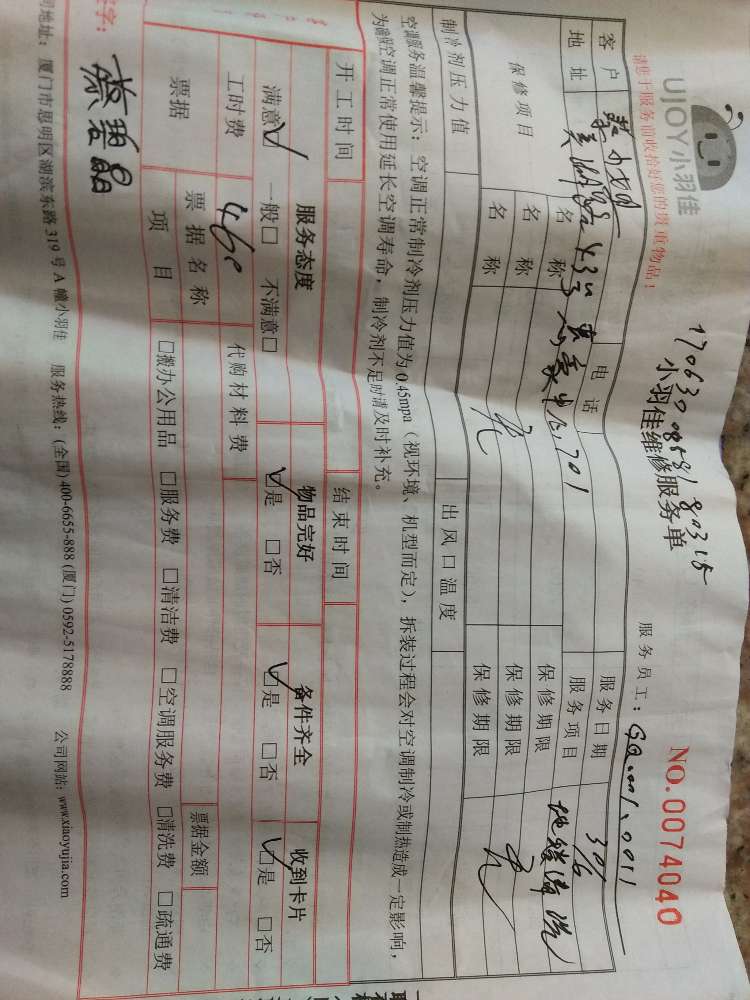 UJOY小羽佳
请您于服务前收拾好您的贵重物品!
小羽佳维修服务单
NO.0074040
服务员工:
客户 电话 服务日期
地址 701 服务项目
保修项目 名称 保修期限
名称 保修期限
名称 无 保修期限 无
制冷剂压力值 出风口温度
空调服务温馨提示:空调正常制冷剂压力值为0.45mpa(视环境、机型而定),拆装过程会对空调制冷或制热造成一定影响,
为确保空调正常使用延长空调寿命,制冷剂不足时请及时补充。
开工时间 结束时间
服务态度 物品完好 备件齐全 收到卡片
满意☑ 一般□ 不满意□ ☑是 □否 ☑是 □否 ☑是 □否
工时费 460 代购材料费
票据 票据名称 票据金额
项目 □搬办公用品 □服务费 □清洁费 □空调服务费 □清洗费 □疏通费
字:
司地址:厦门市思明区湖滨东路319号A幢小羽佳 服务热线:(全国)400-6655-888(厦门)0592-5178888 公司网站:www.xiaoyujia.com